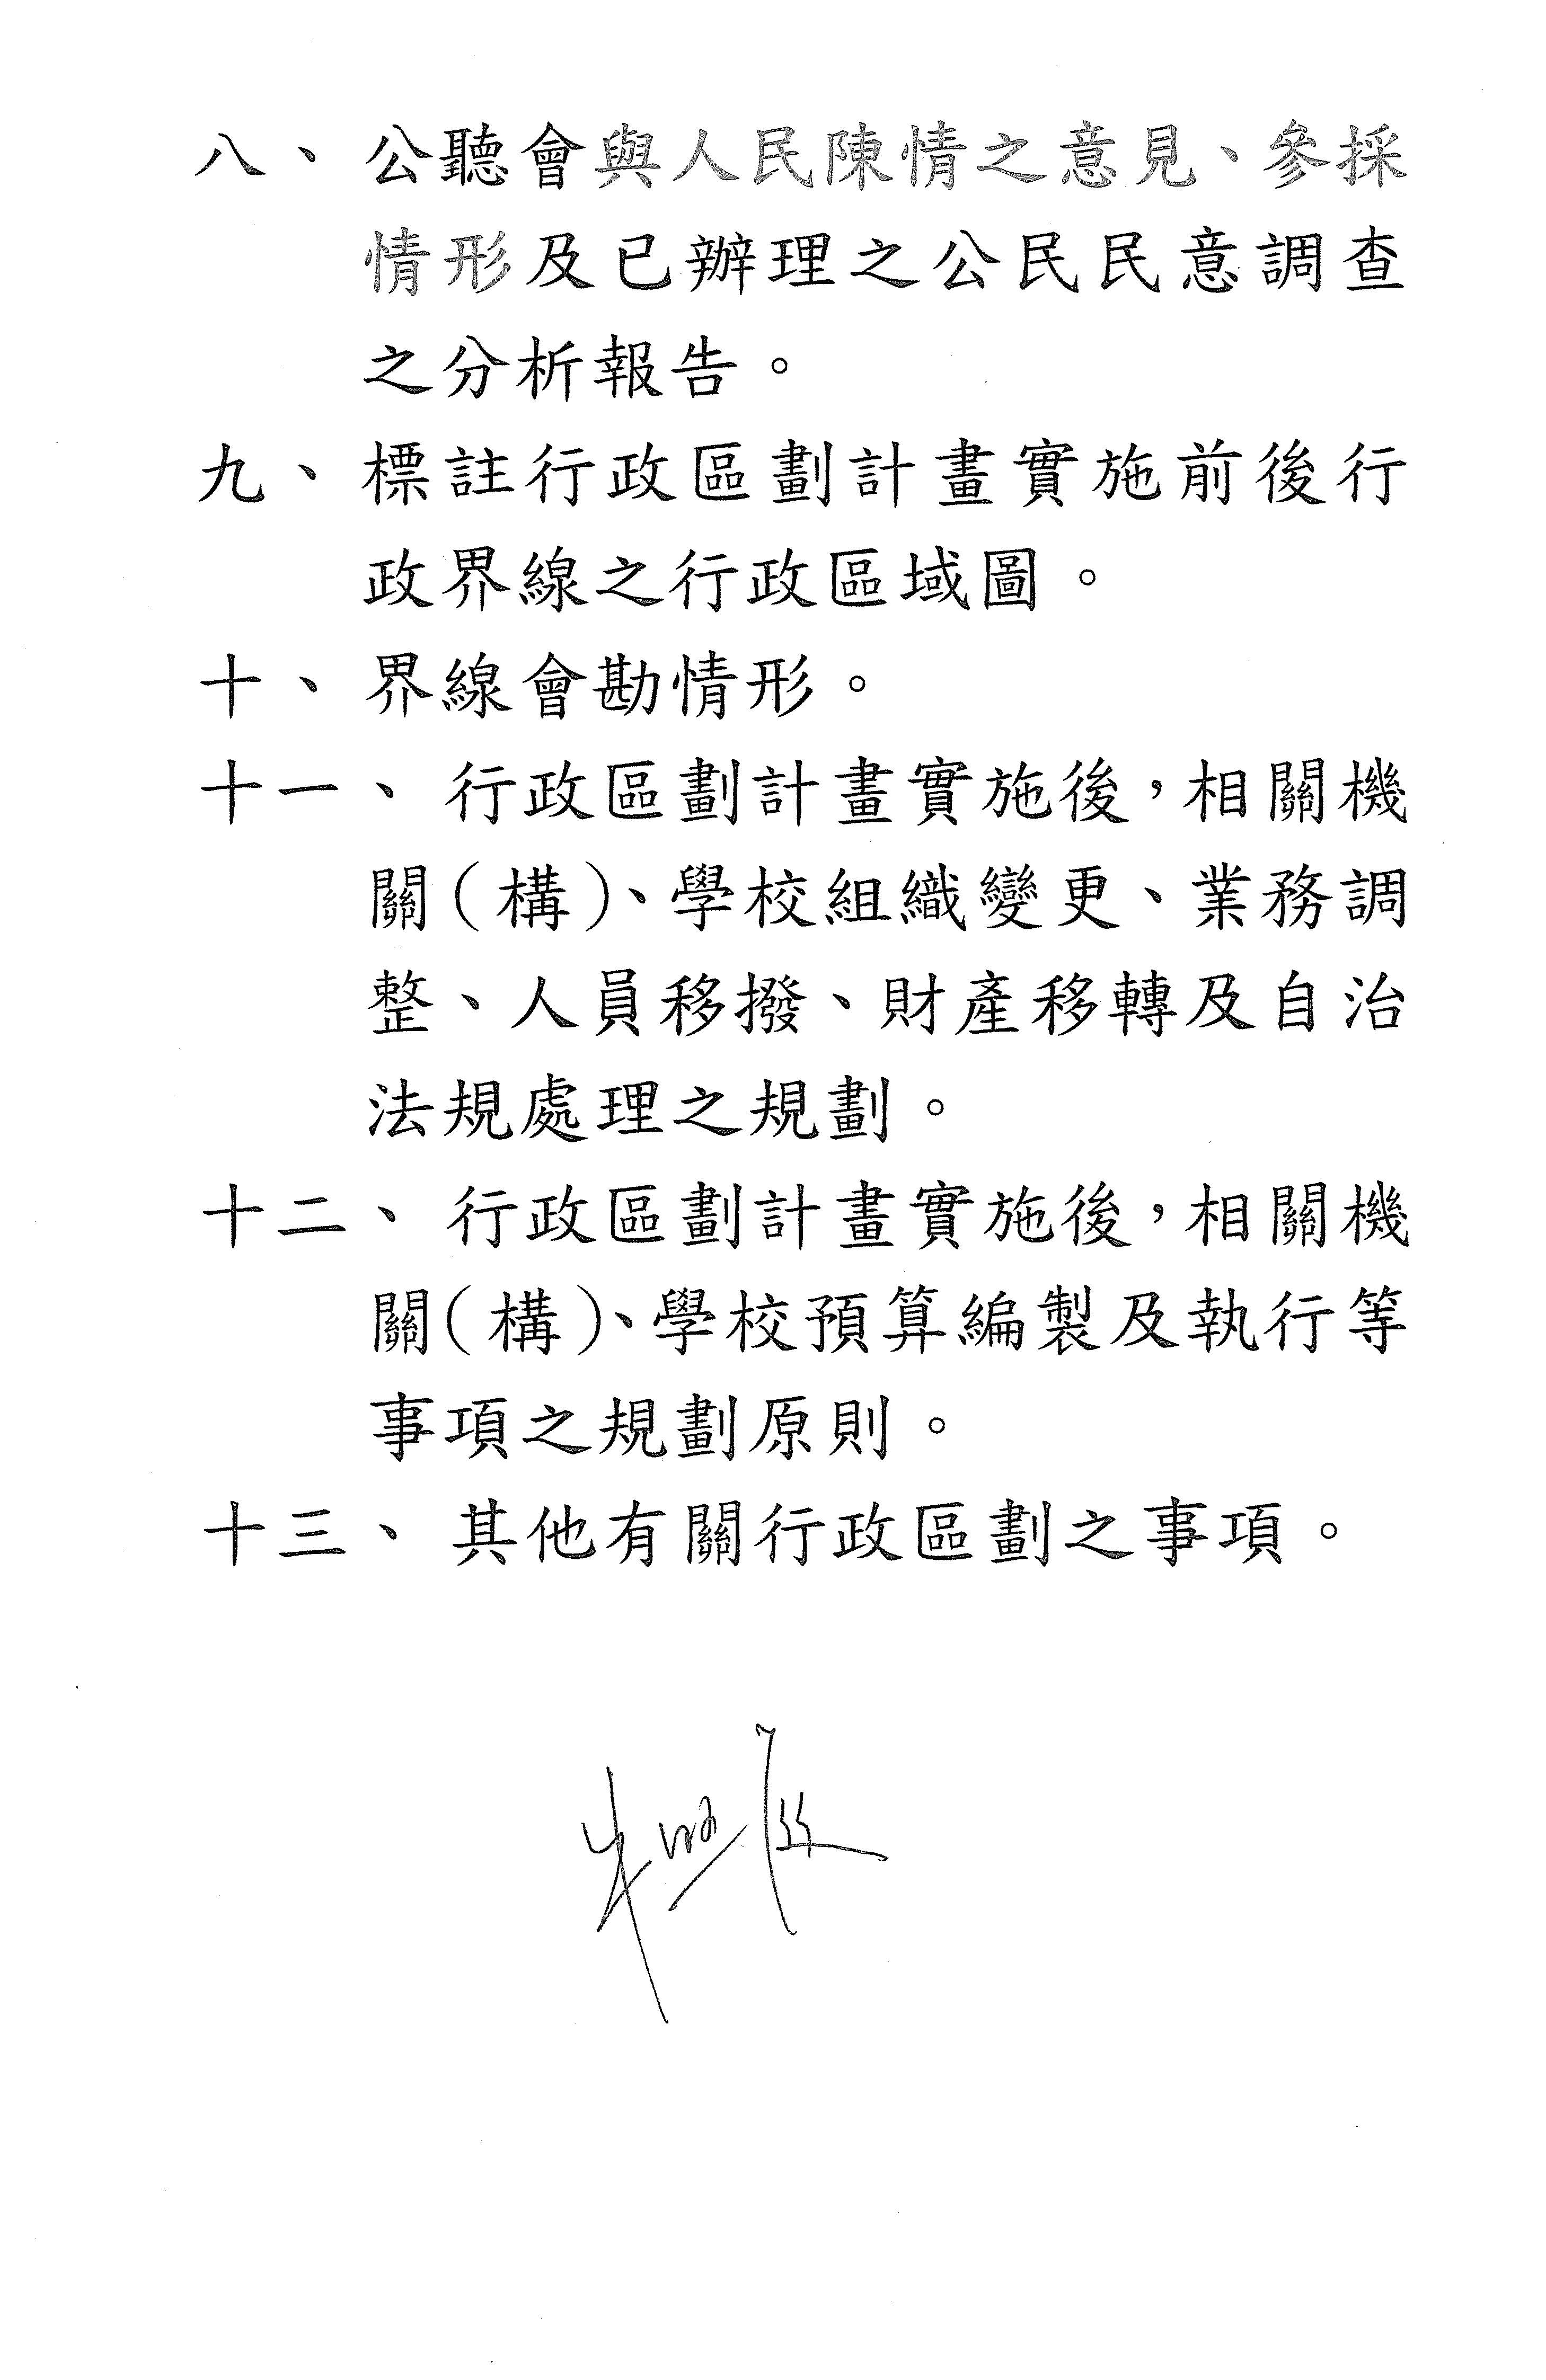 八、公聽會與人民陳情之意見、參採
情形及已辦理之公民民意調查
之分析報告。
九、標註行政區劃計畫實施前後行
政界線之行政區域圖。
十、界線會勘情形。
十一、行政區劃計畫實施後，相關機
關(構)、學校組織變更、業務調
整、人員移撥、財產移轉及自治
法規處理之規劃。
十二、行政區劃計畫實施後，相關機
關(構)、學校預算編製及執行等
事項之規劃原則。
十三、其他有關行政區劃之事項。